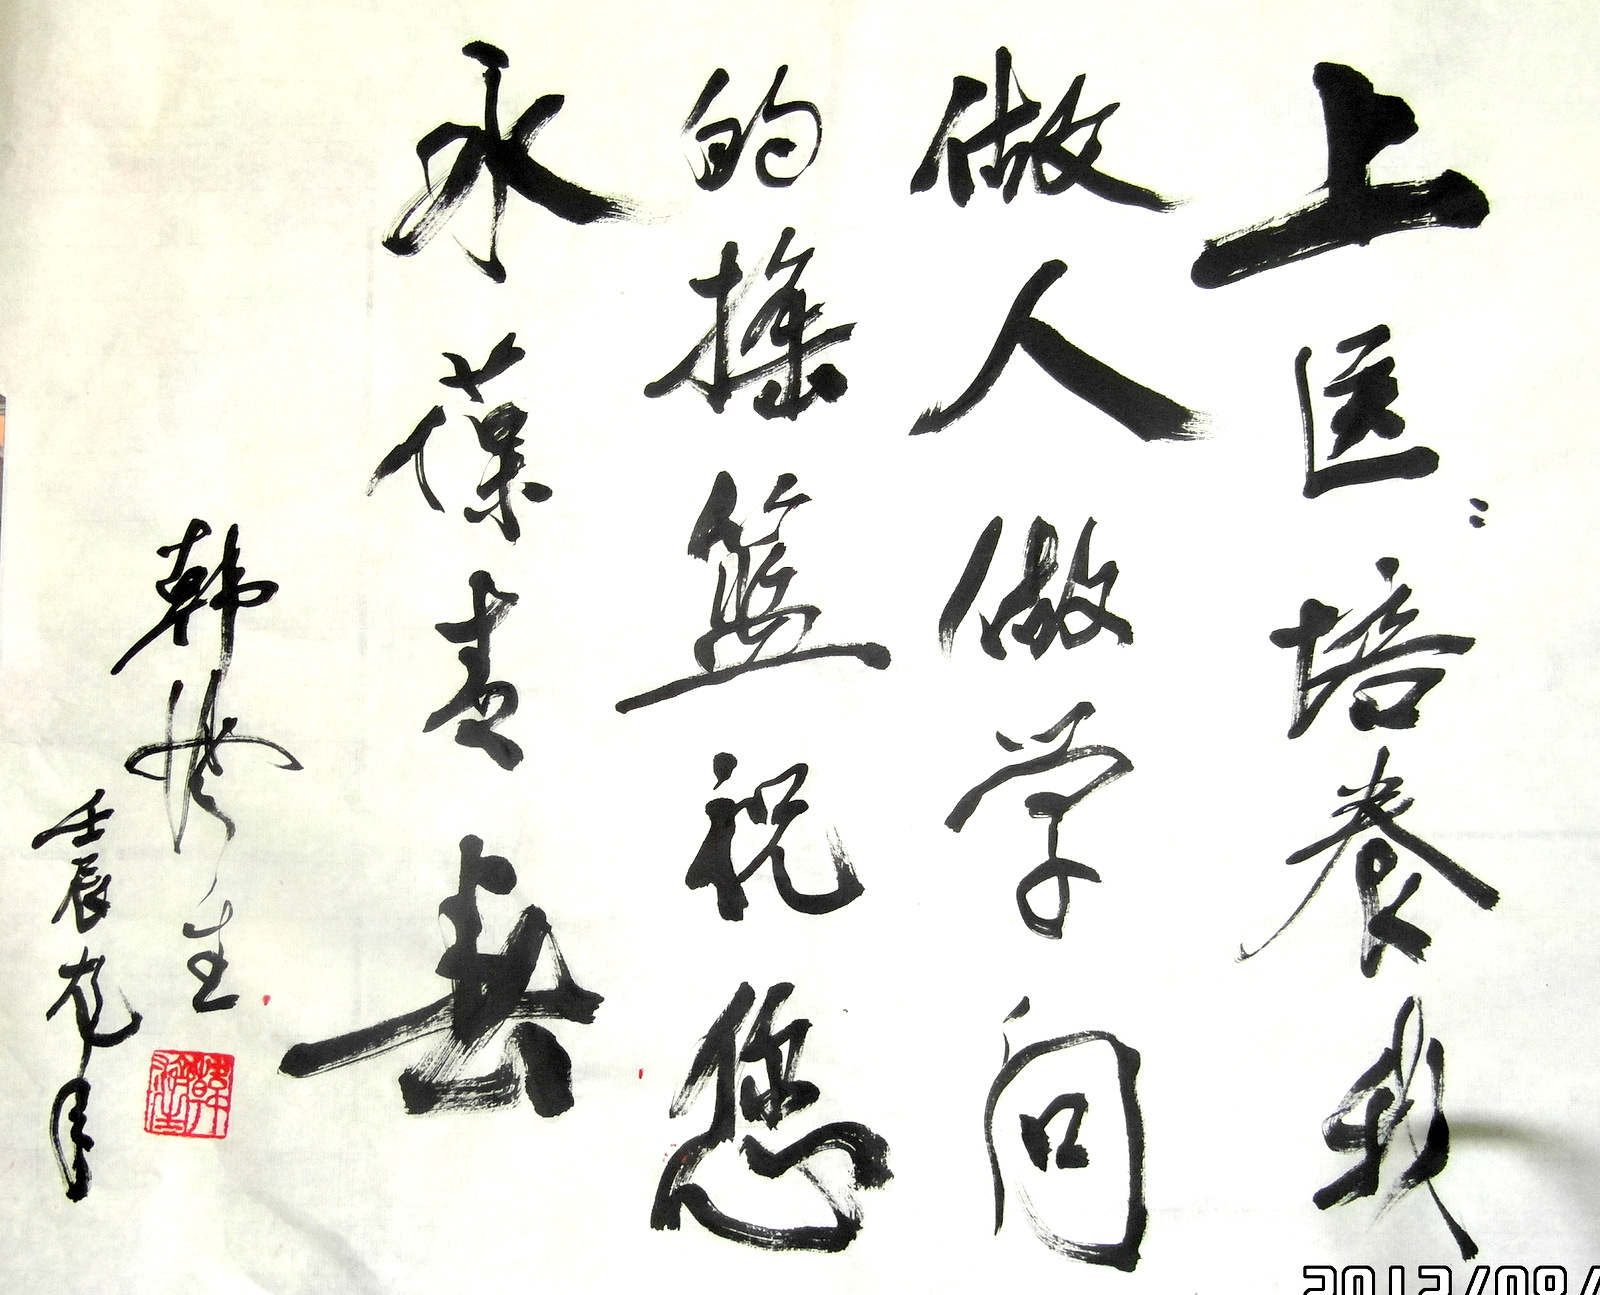 上医：培养我
做人做学问
的摇篮祝您
永葆青春
韩
生
壬辰龙年
2012/09/